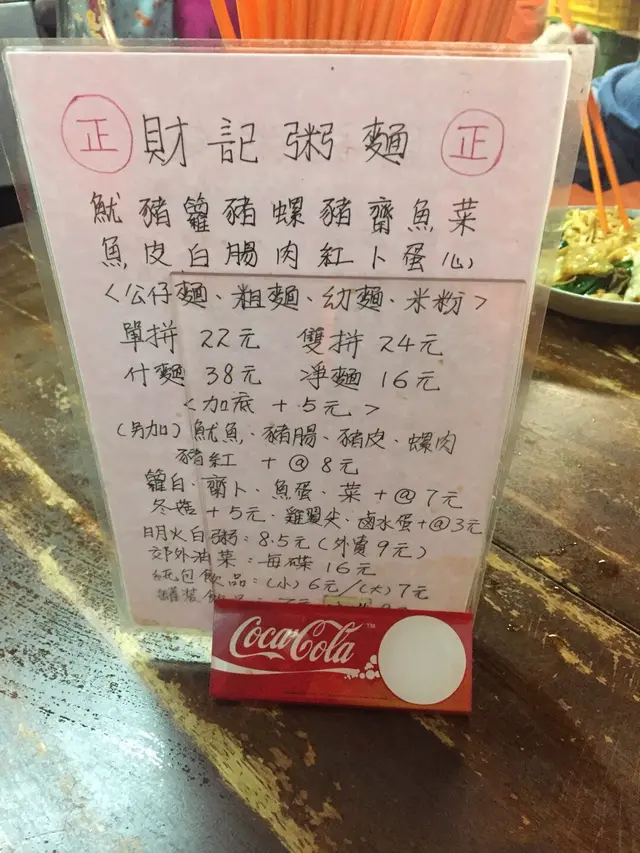 正 財記粥麵 正
魷豬籮豬螺豬齋魚菜
魚皮白腸肉紅卜蛋(心)
<公仔麵、粗麵、幼麵、米粉>
單拼 22元 雙拼 24元
什麵 38元 淨麵 16元
<加底 + 5元>
(另加) 魷魚、豬腸、豬皮、螺肉
豬紅 + @ 8元
籮白、齋卜、魚蛋、菜 + @ 7元
冬菇 + 5元、雞翼尖、鹵水蛋 + @ 3元
明火白粥: 8.5元 (外賣 9元)
郊外油菜: 每碟 16元
紙包飲品: (小) 6元/(大) 7元
罐裝飲品:
Coca-Cola ™